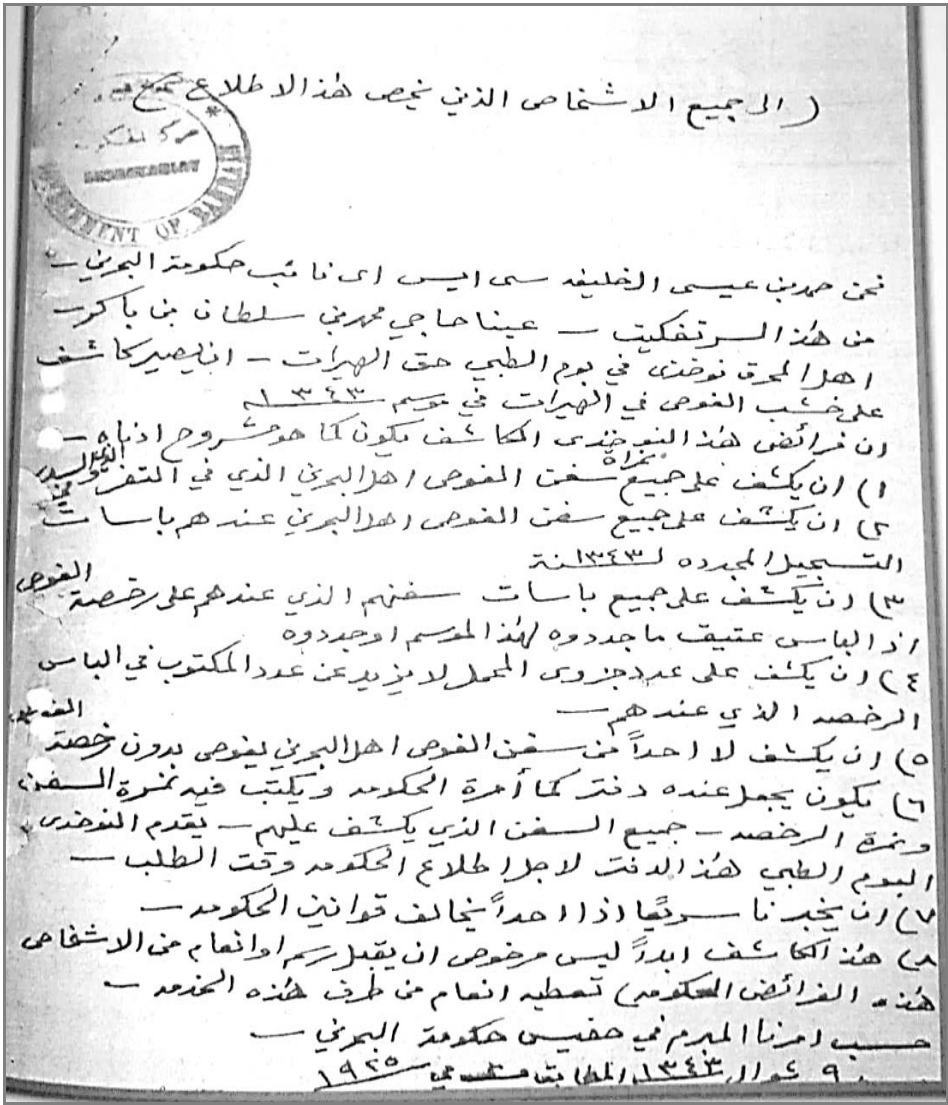 ( الى جميع الاشخاص الذين يخص هذا الاطلاع
GOVERNMENT OF BAHRAIN
نحن حمد بن عيسى الخليفه سي ايس اي نائب حكومة البحرين –
من هذا السرتفكيت – عينا حاجي محمد بن سلطان بن باكر –
اهل المحرق نوخذى في بوم الطبي حق الهيرات – ان يصير كاشف
على خشب الغوص في الهيرات في موسم ١٣٤٣
ان فرائض هذا النوخذى الكاشف يكون كما هو مشروح ادناه –
١) ان يكشف على جميع نمراة سفن الغوص اهل البحرين الذي في التفر
٢) ان يكشف على جميع سفن الغوص اهل البحرين عندهم باسات
التسجيل المجدده لسنة ١٣٤٣
٣) ان يكشف على جميع باسات سفنهم الذي عندهم على رخصة الغوص
اذا الباس عتيق ما جددوه لهذا الموسم او جددوه
٤) ان يكشف على عدد جزوى المحمل لا يزيد عن عدد المكتوب في الباس
الرخصه الذي عندهم –
٥) ان يكشف لا احداً من سفن الغوص اهل البحرين يغوص بدون رخصة الغوص
٦) يكون يجعل عنده دفتر كما أمرة الحكومه ويكتب فيه نمرة السفن
ونمرة الرخصه – جميع السفن الذي يكشف عليهم – يقدم النوخذى
البوم الطبي هذا الدفتر لاجل اطلاع الحكومه وقت الطلب –
٧) ان يخبرنا سريعًا اذا احداً يخالف قوانين الحكومه –
٨) هذا الكاشف ابداً ليس مرخوص ان يقبل رسم او انعام من الاشخاص
هذه الفرائض الحكومه) تعطيه انعام من طرف هذه الخدمه –
حسب امرنا المبرم في حفيس حكومة البحرين –
٩ شوال ١٣٤٣ المطابق في ١٩٢٥